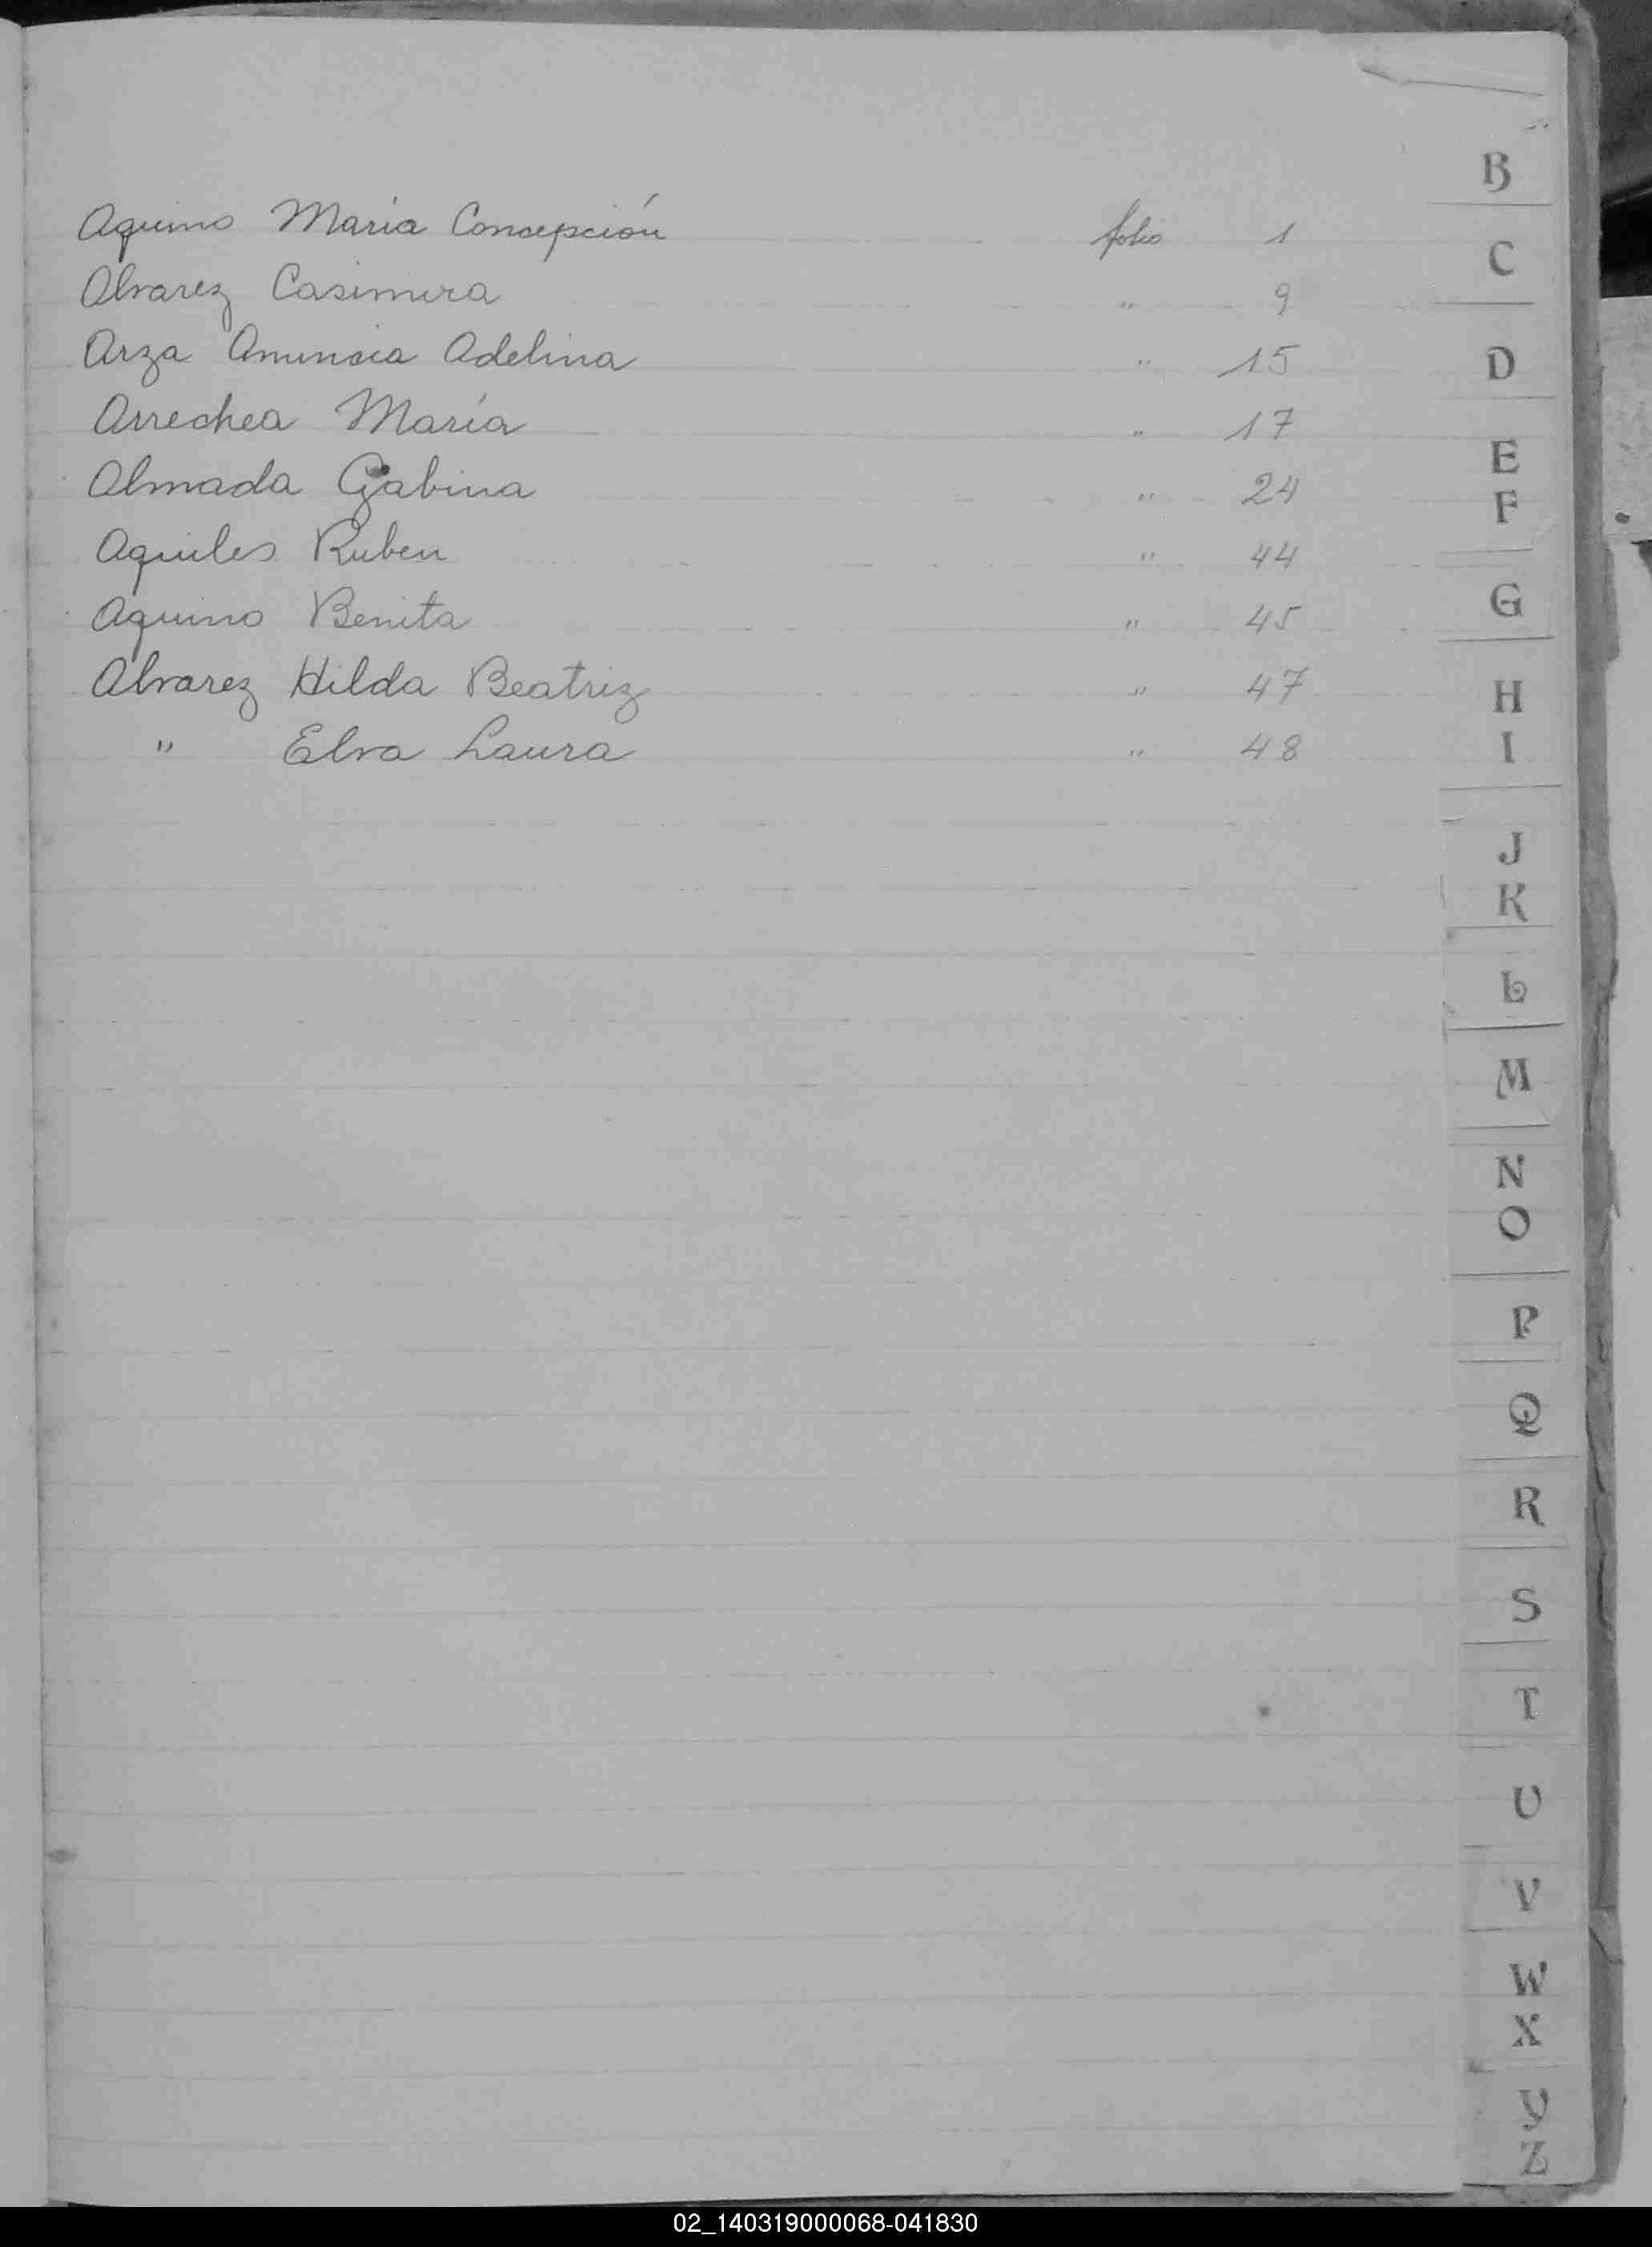 Aquino Maria Concepción folio 1
Alvarez Casimira " 9
Arza Anuncia Adelina " 15
Arrechea María " 17
Almada Gabina " 24
Aquiles Ruben " 44
Aquino Benita " 45
Alvarez Hilda Beatriz " 47
" Elva Laura " 48
B
C
D
E
F
G
H
I
J
K
L
M
N
O
P
Q
R
S
T
U
V
W
X
Y
Z
02_140319000068-041830